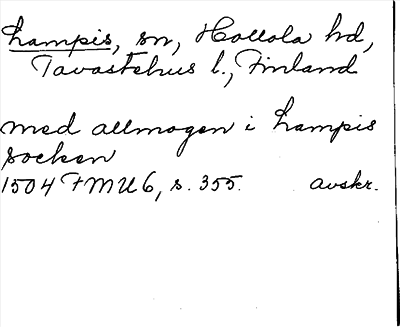 Lampis, sn, Hollola hd,
Tavastehus l., Finland
med allmogen i Lampis
socken
1504 FMU 6, s. 355. avskr.